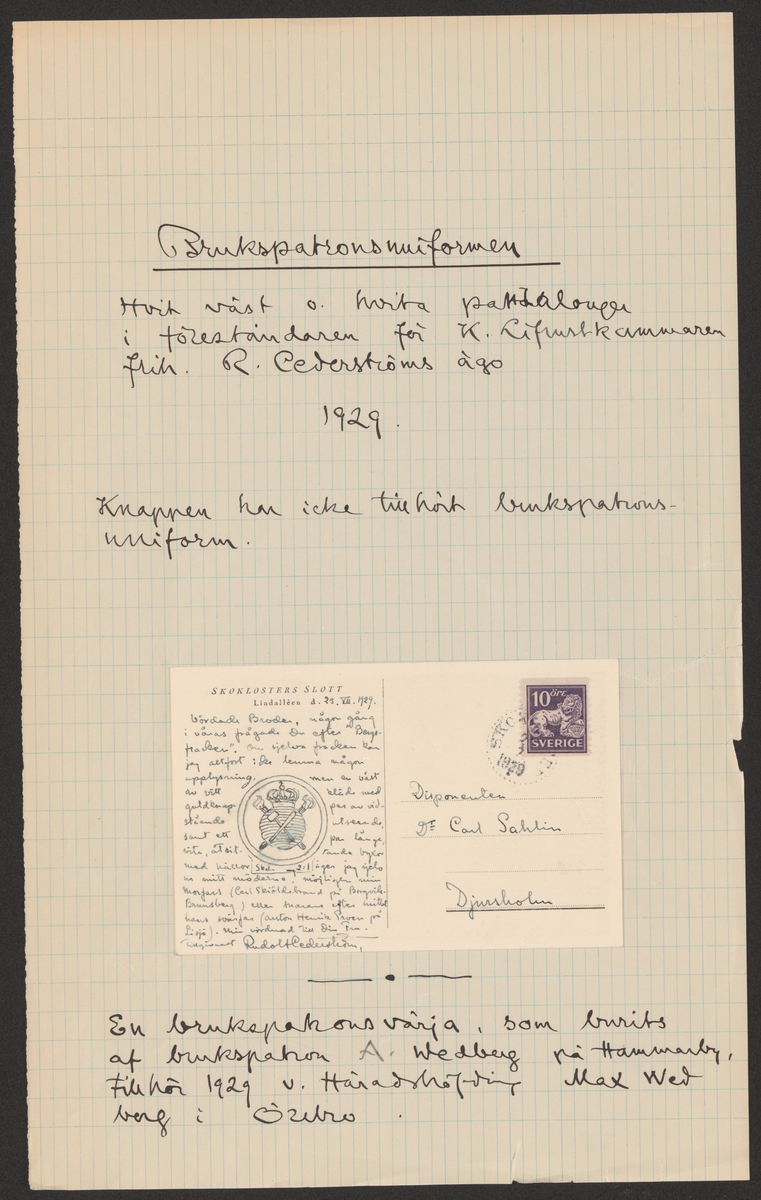 Brukspatronsuniformen
Hvit väst o. hvita pantalonger
i föreståndaren för K. Lifrustkammaren
frih. R. Cederströms ägo
1929.
Knappen har icke tillhört brukspatrons-
uniform.
SKOKLOSTERS SLOTT
Lindalléen d. 29. VII. 1929.
Vördade Broder, någon gång
i våras frågade Du efter "Bergs-
fracken". Om själva fracken kan
jag alltfort icke lemna någon
upplysning, men en väst
av vitt kläde med
guldknapp par av vid-
stående utseende,
samt ett par långa,
vita, åtsit- tande byxor
med hällor äger jag själv
möjligen min
Morfars (Carl Sköldebrand på
) eller snarare efter
hans svärfar (Anton Henrik på
Lisjö). Min vördnad till Din Fru.
Rudolf Cederström,
10 ÖRE
SVERIGE
1929
Disponenten
Dr Carl Sahlin
Djursholm
En brukspatronsvärja, som burits
af brukspatron A. Wedberg på Hammarby,
tillhör 1929 v. Häradshöfding Max Wed
berg i Örebro.